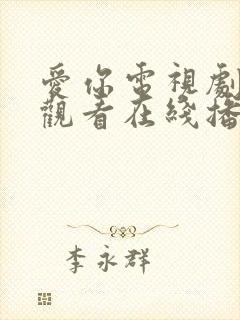 愛你電視劇
觀看在綫播
李永群